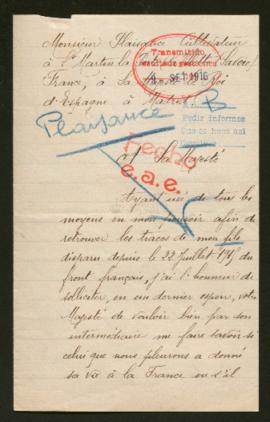 Monsieur Plaisance Cultivateur
à St Martin la Savoie
France, à Sa Majesté le Roi
d'Espagne à Madrid
Transmitido
4 SET. 1916
B
Pedir informes
Plaisance
Hecho
c.a.e.
Sa Majesté
Ayant usé de tous les
moyens en mon pouvoir afin de
retrouver les traces de mon fils
disparu depuis le 22 Juillet 1915 du
front français, j'ai l'honneur de
solliciter, en un dernier espoir, votre
Majesté de vouloir bien par son
intermédiaire me faire savoir si
celui que nous pleurons a donné
sa vie à la France ou s'il